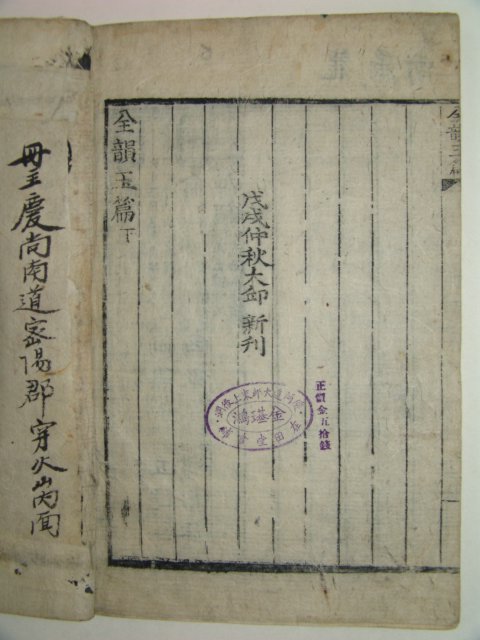 全韻玉篇
戊戌仲秋大邱新刊
正價金五拾錢
金璂鴻
全韻玉篇下
冊主慶尚南道密陽郡穿火山內面